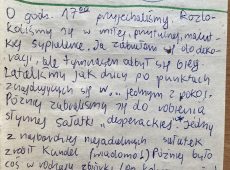 O godz. 17ej przyjechaliśmy. Rozlo-
kowaliśmy się w miłej, przytulnej, malut-
kiej sypialence. Ja zabrałam się do deko-
racji, ale tymczasem odbył się bieg
Latałyśmy jak dzicy po punktach
znajdujących się w... jednym z pokoi.
Później zabrałyśmy się do robienia
słynnej sałatki "desperackiej". Jedną
z najbardziej niejadalnych sałatek
zrobił Kundel (wiadomo!) Później było
coś w rodzaju zbiórki